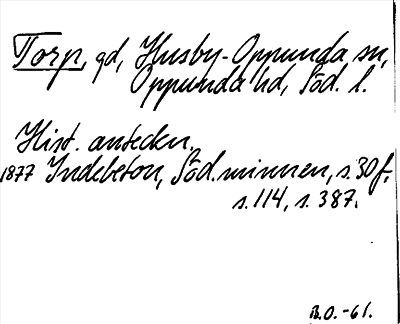 Torp, gd, Husby-Oppunda sn,
Oppunda hd, Söd. l.
Hist. anteckn.
1877 Indebetou, Söd.minnen, s.30 f,
s.114, s.387.
B.O.-61.